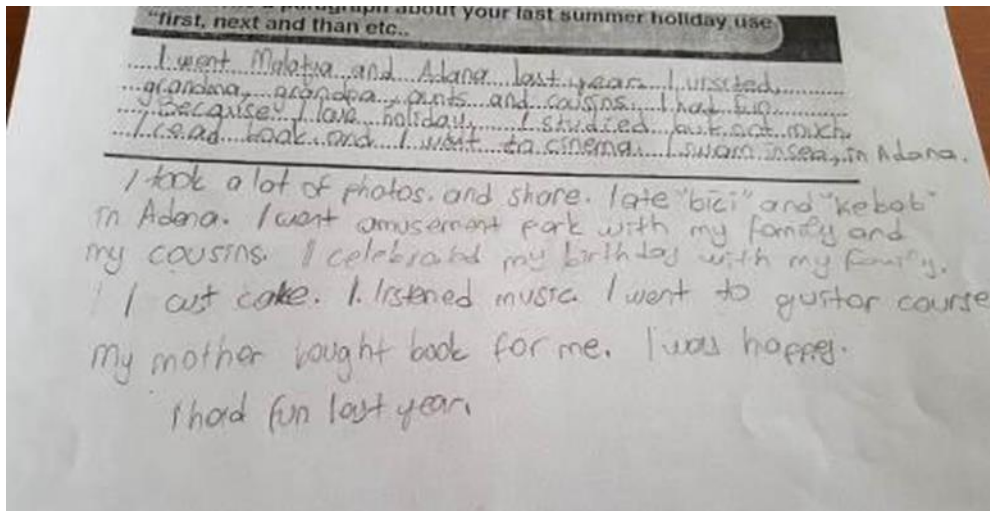 paragraph about your last summer holiday, use
"first, next and than etc..
I went Malatya and Adana last year. I visited
grandma, grandpa, aunts and cousins. I had fun
Because I love holiday. I studied but not much.
I read book and I went to cinema. I swam in sea, in Adana.
I took a lot of photos. and share. I ate "bici" and "kebab"
in Adana. I went amusement park with my family and
my cousins. I celebrated my birthday with my family.
I cut cake. I listened music I went to guitar course
My mother bought book for me. I was happy.
I had fun last year.